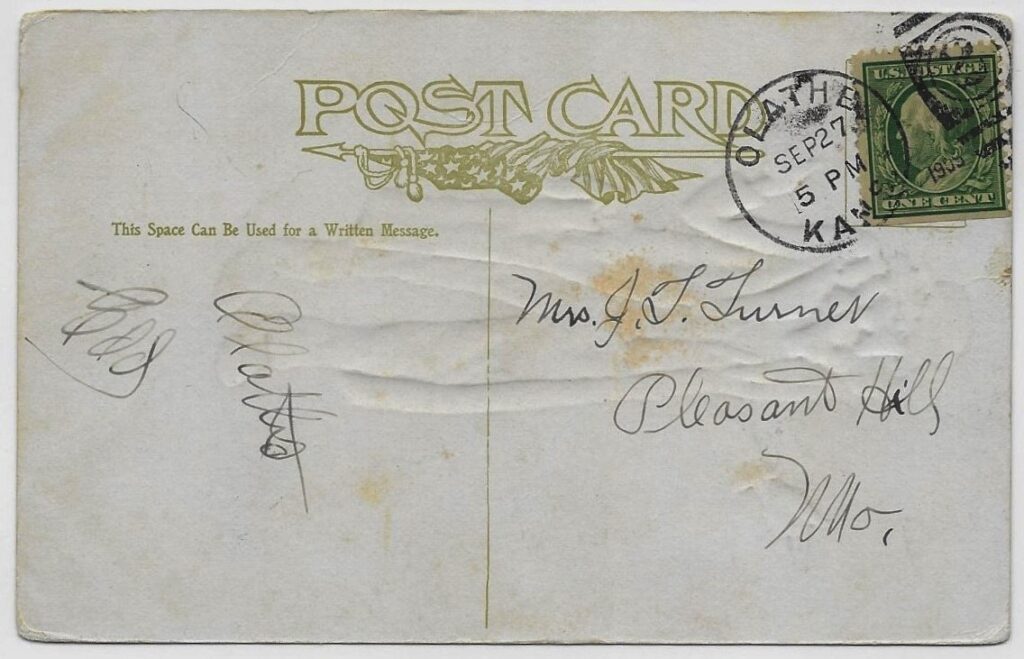 POST CARD
OLATHE
SEP 27
5 PM
KANS.
1909
U.S. POSTAGE
ONE CENT
This Space Can Be Used for a Written Message.
Mrs. J. T. Turner
Pleasant Hill
Mo.
Olathe